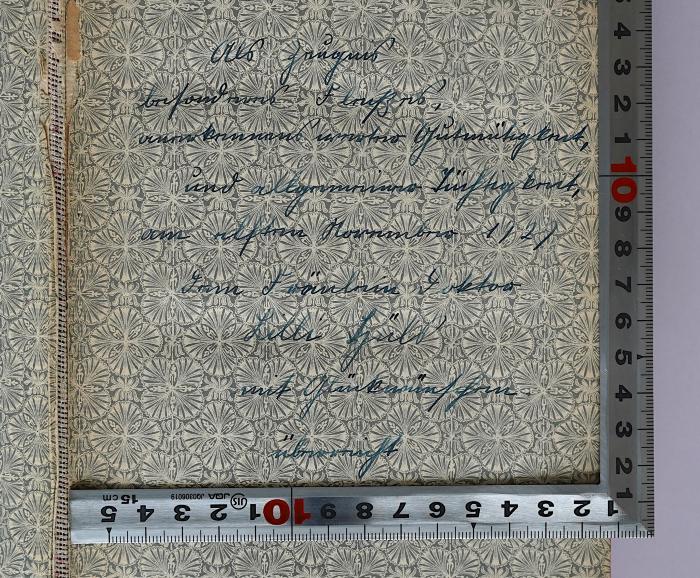 Als Zeugnis
besonderen Fleißes,
anerkennenswerter Gutmütigkeit,
und allgemeiner Tüchtigkeit,
am elften November 1921
dem Fräulein Doktor
Lilli
mit Glückwünschen
überreicht
4 3 2 1 10 9 8 7 6 5 4 3 2 1
5 4 3 2 1 10 9 8 7 6 5 4 3 2 1
15cm JQA JQ0306019 JIS